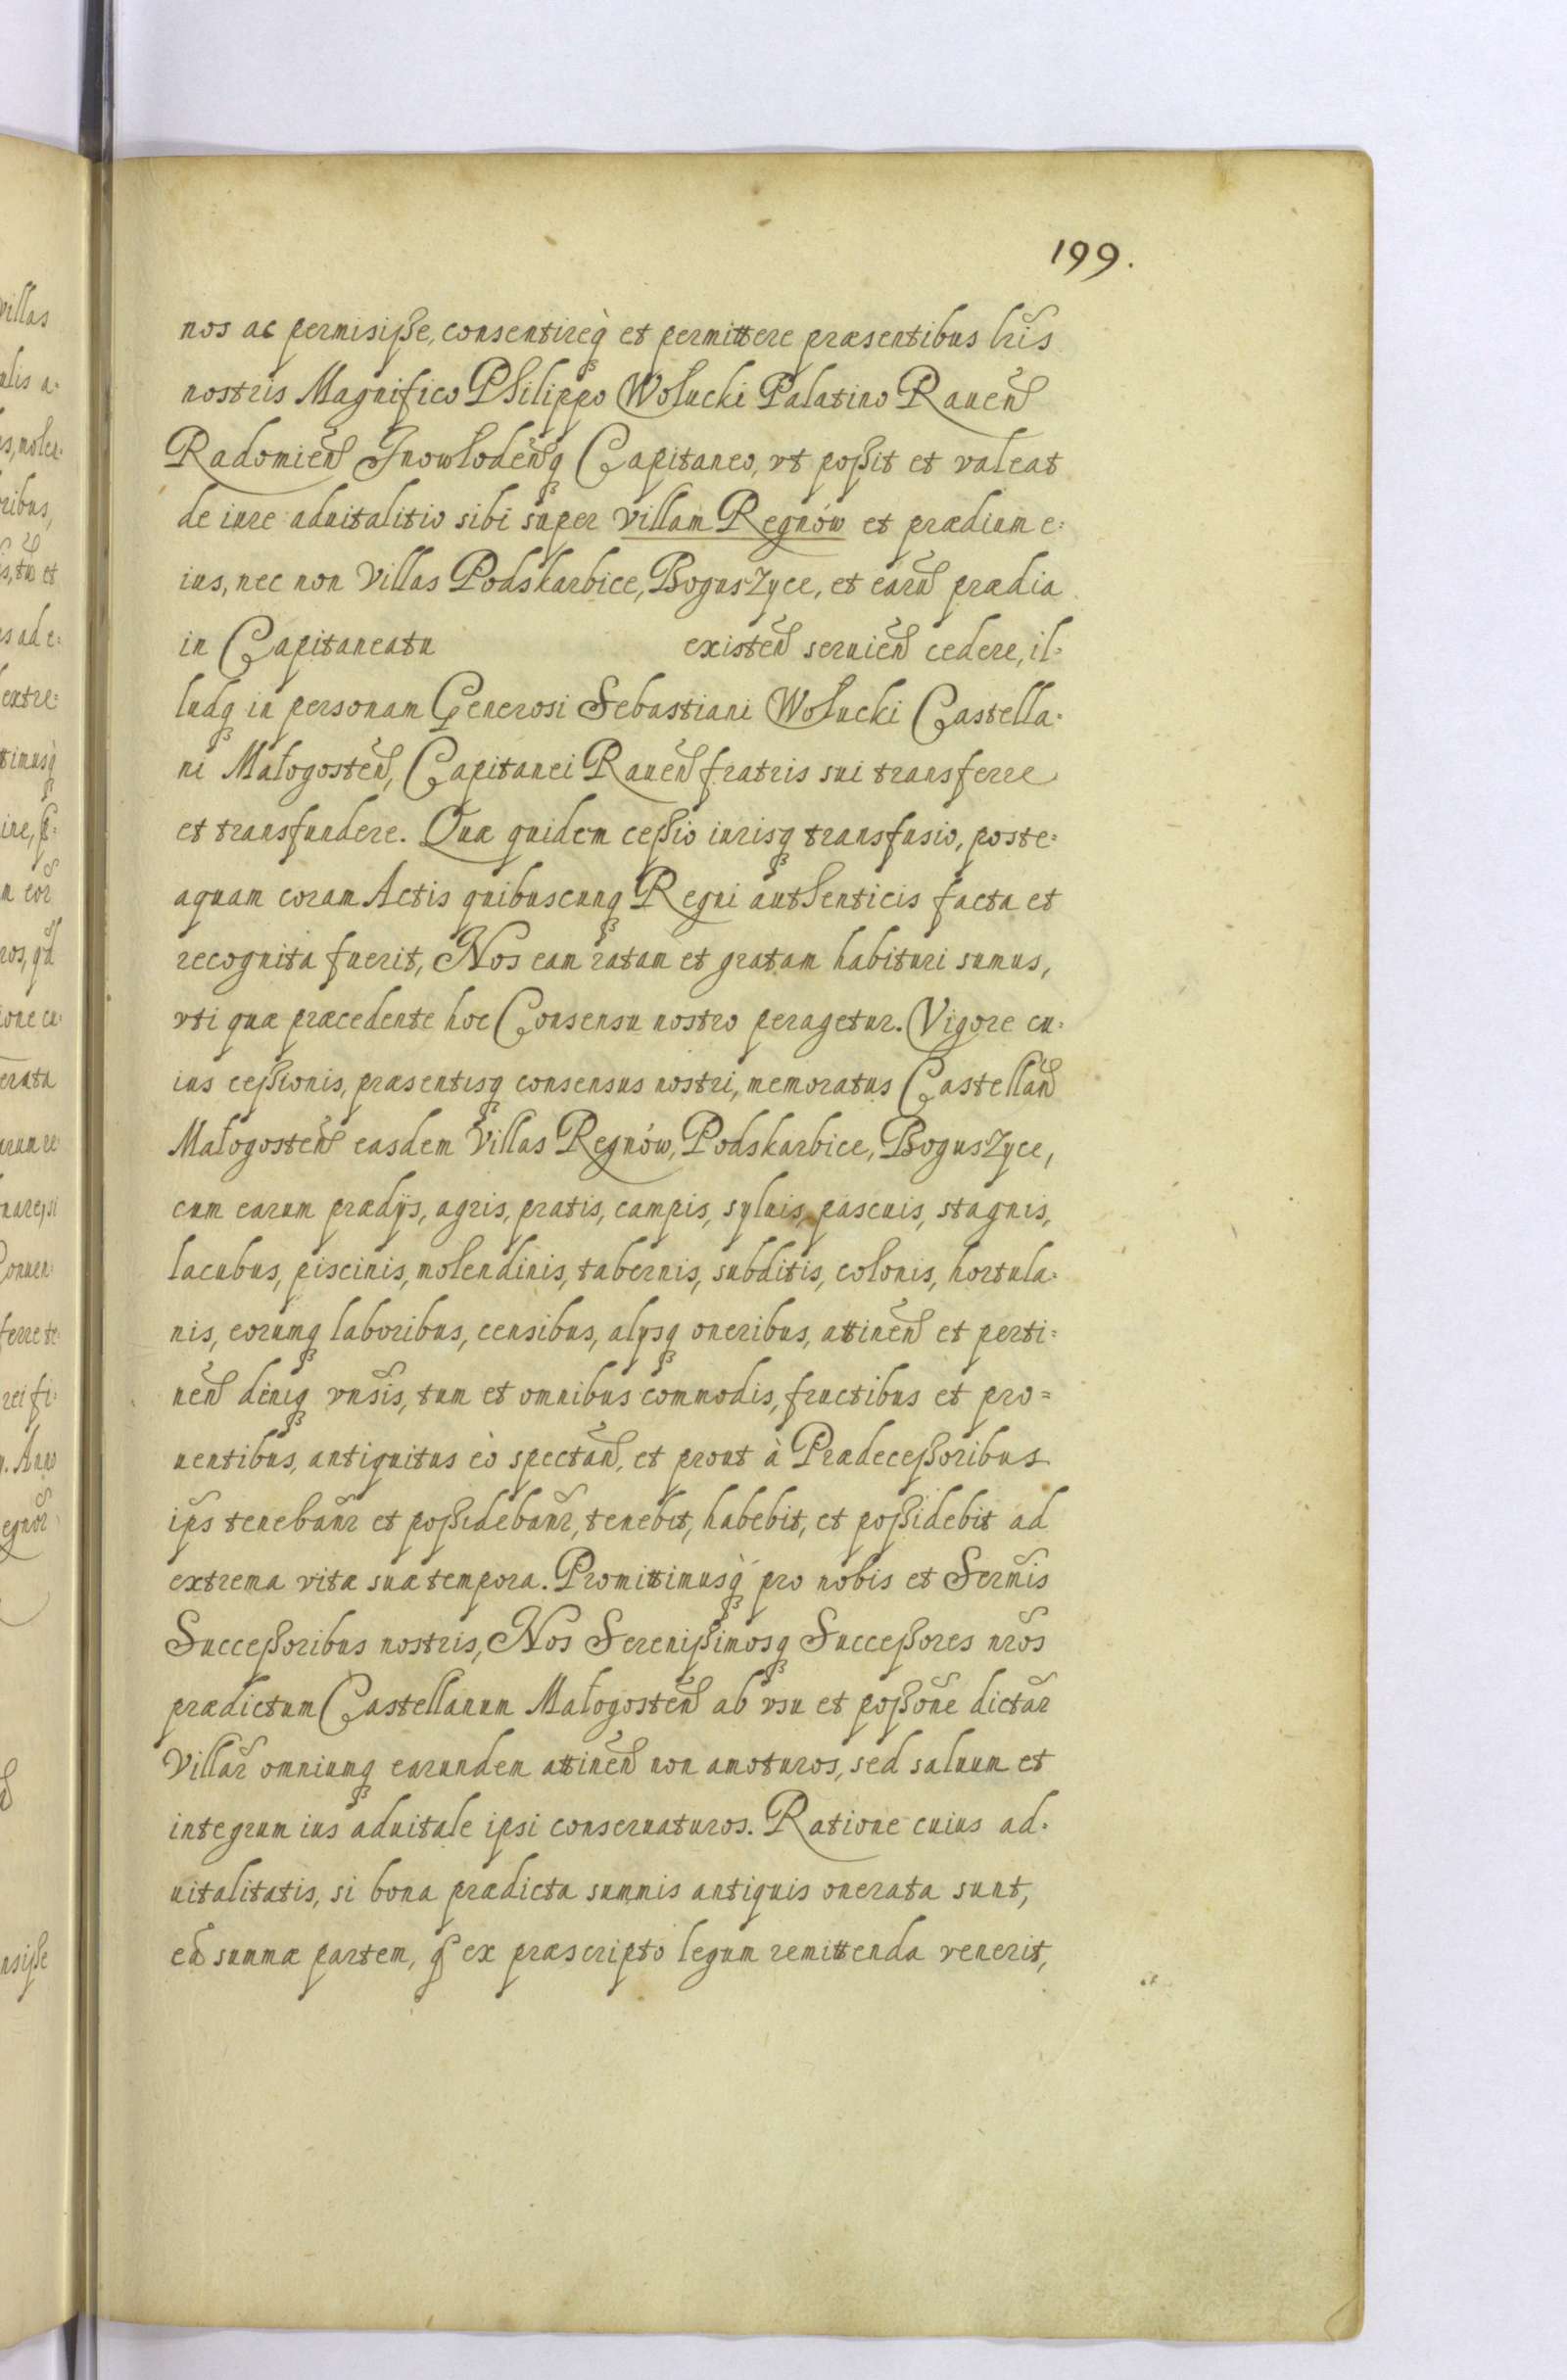 199.
nos ac permisiſse, consentireq̀ et permittere præsentibus lr̃is
nostris Magnifico Philippo Wołucki Palatino Rauen̄
Radomien̄ Inowłoden̄q Capitaneo, vt poſsit et valeat
de iure aduitalitio sibi super villam Regnów et prædium e:
ius, nec non Villas Podskarbice, Boguszyce, et earū prædia
in Capitaneatu existen̄ seruien̄ cedere, il:
ludq in personam Generosi Sebastiani Wołucki Castella:
ni Małogosten̄, Capitanei Rauen̄ fratris sui transferre
et transfundere. Quæ quidem ceſsio iurisq transfusio, poste:
aquam coram Actis quibuscunq Regni authenticis facta et
recognita fuerit, Nos eam ratam et gratam habituri sumus,
vti quæ præcedente hoc Consensu nostro peragetur. Vigore cu:
ius ceſsionis, præsentisq consensus nostri, memoratus Castellan̄
Małogosten̄ easdem Villas Regnów, Podskarbice, Boguszyce,
cum earum prædijs, agris, pratis, campis, syluis, pascuis, stagnis,
lacubus, piscinis, molendinis, tabernis, subditis, colonis, hortula:
nis, eorumq laboribus, censibus, alijsq oneribus, attinen̄ et perti:
nen̄ deniq vnīsis, tum et omnibus commodis, fructibus et pro=
uentibus, antiquitus eò spectan̄, et prout à Prædeceſsoribus
ip̃s tenebañr et poſsidebañr, tenebit, habebit, et poſsidebit ad
extrema vitæ suæ tempora. Promittimusq̀ pro nobis et Serm̃is
Succeſsoribus nostris, Nos Sereniſsimosq Succeſsores nr̃os
prædictum Castellanum Małogosten̄ ab vsu et poſsõne dictar̃
Villar̃ omniumq earundem attinen̄ non amoturos, sed saluum et
integrum ius aduitale ipsi conseruaturos. Ratione cuius ad:
uitalitatis, si bona prædicta summis antiquis onerata sunt,
eā summæ partem, q̃ ex præscripto legum remittenda venerit,